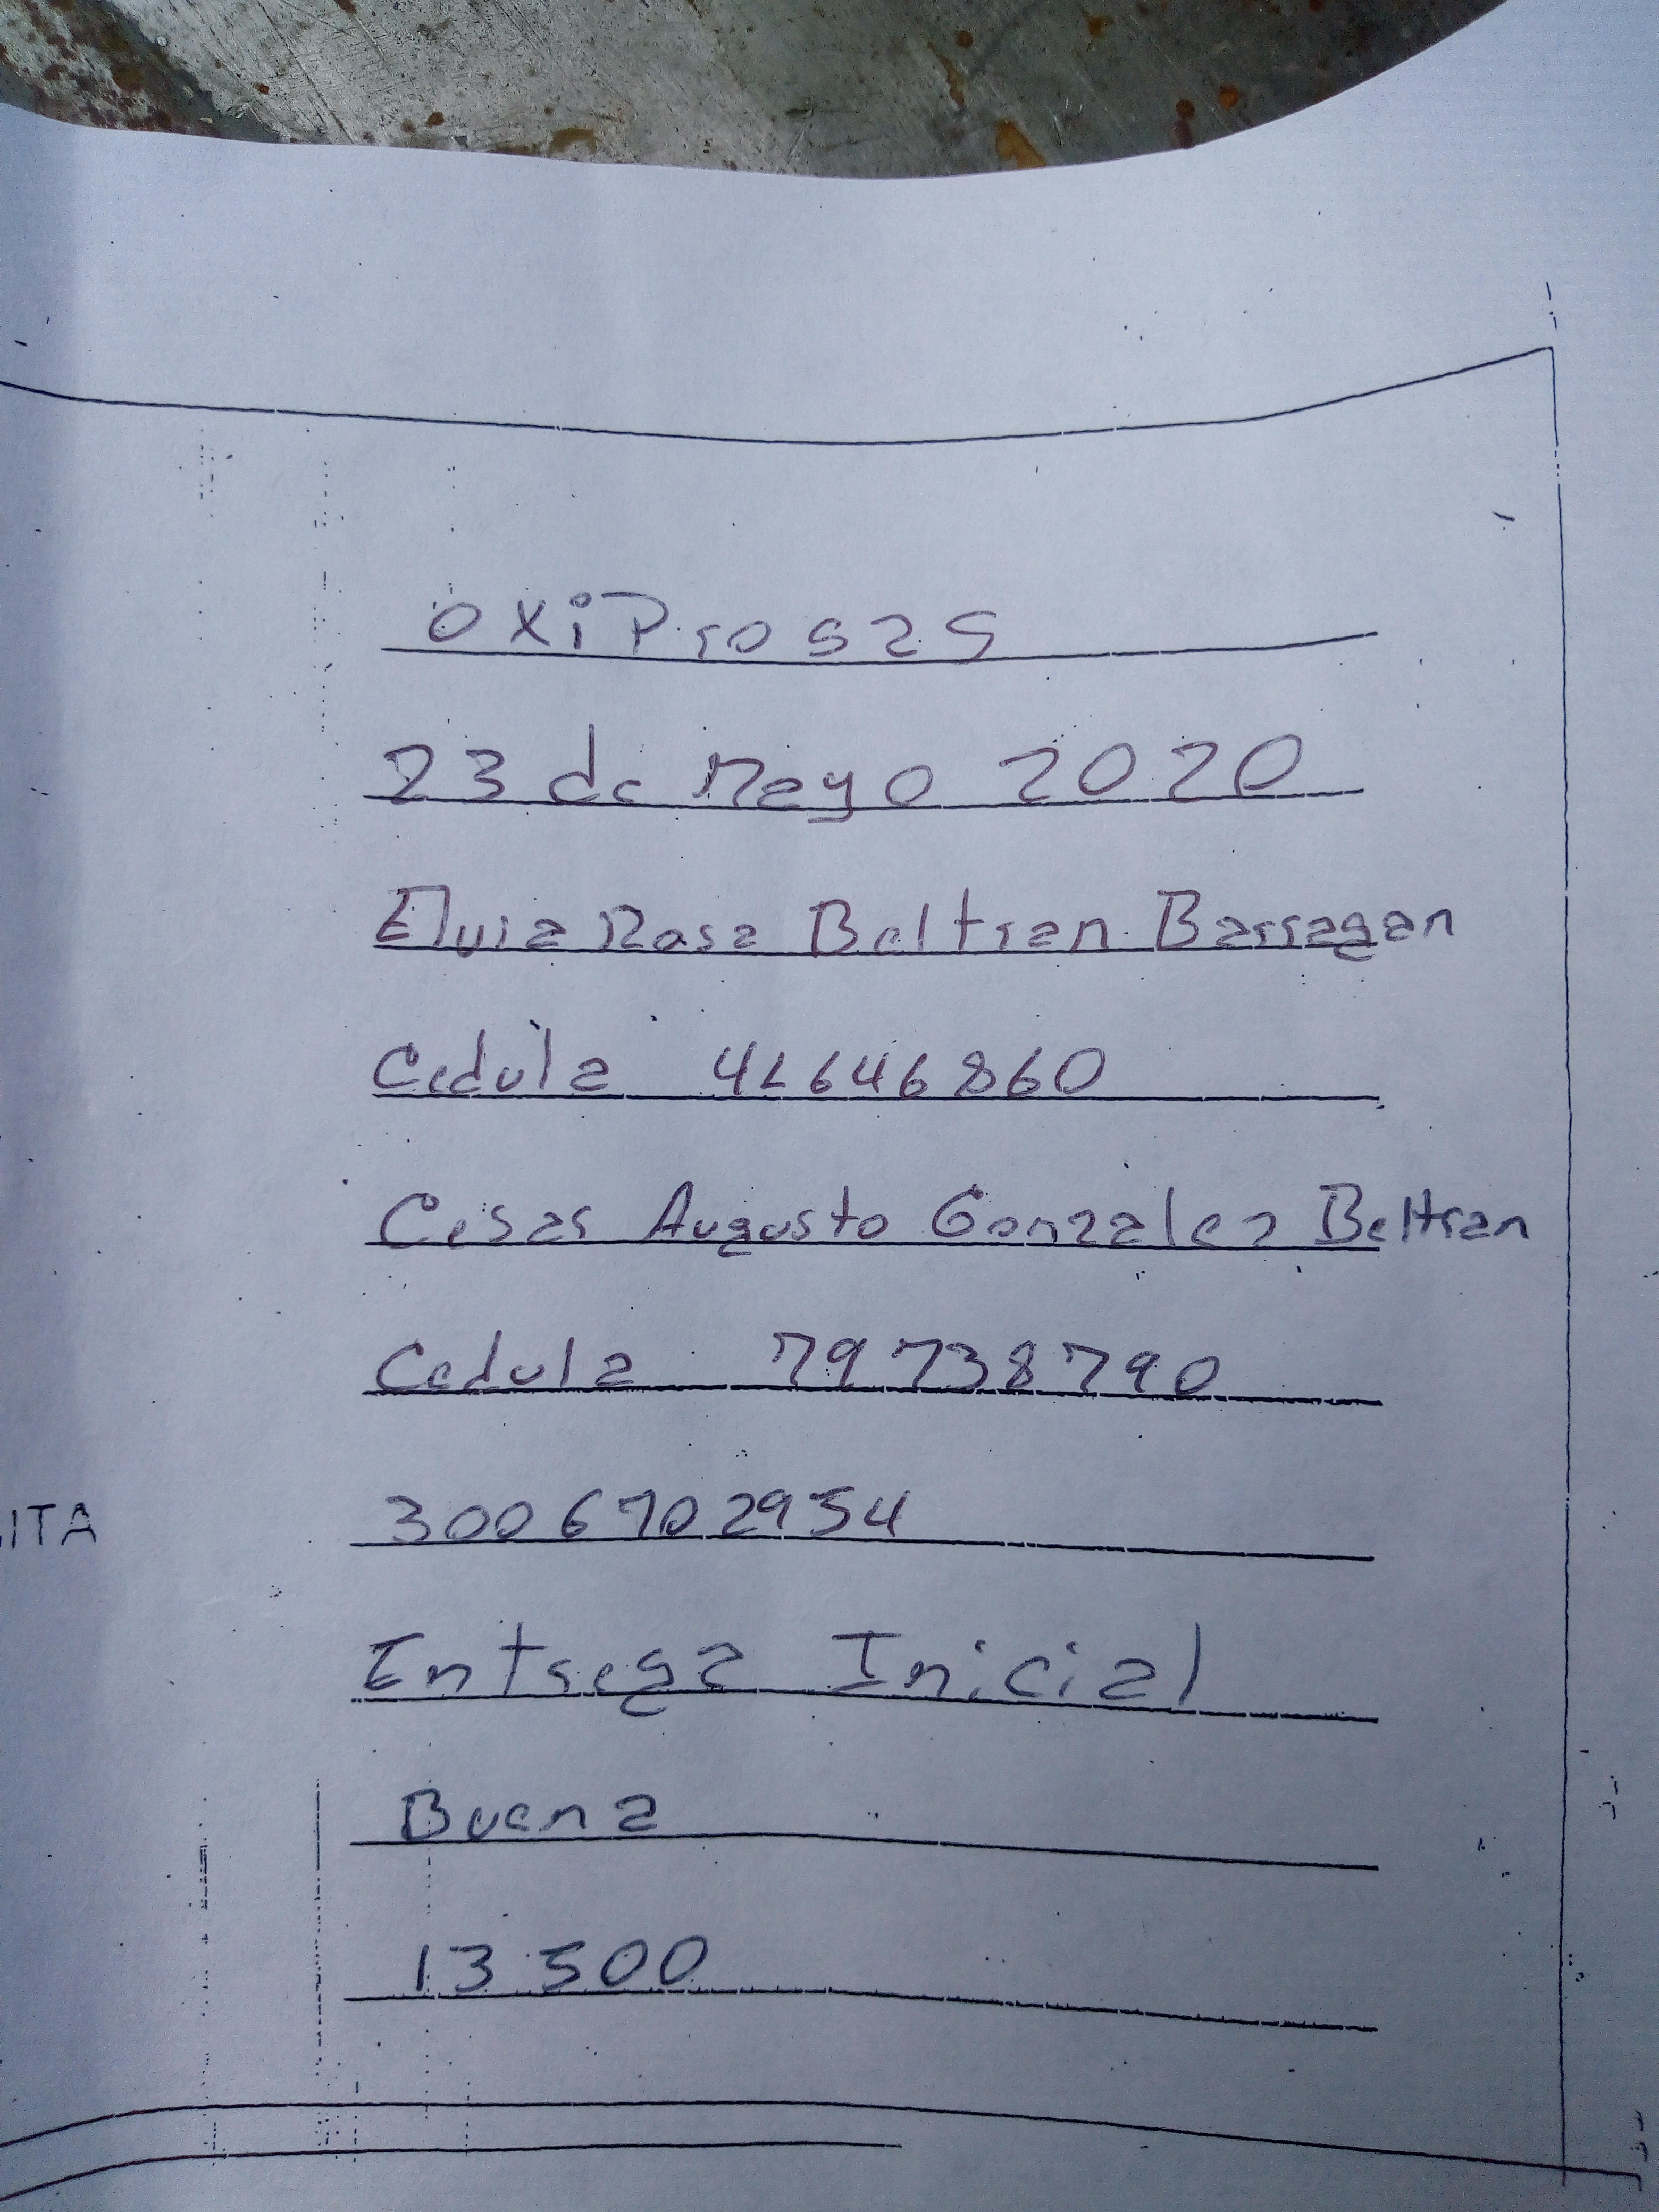 Oxipro sas
23 de Mayo 2020
Elvia Rosa Beltran Barragan
Cedula 41646860
Cesar Augusto Gonzalez Beltran
Cedula 79738790
ITA 3006702954
Entrega Inicial
Buena
13500